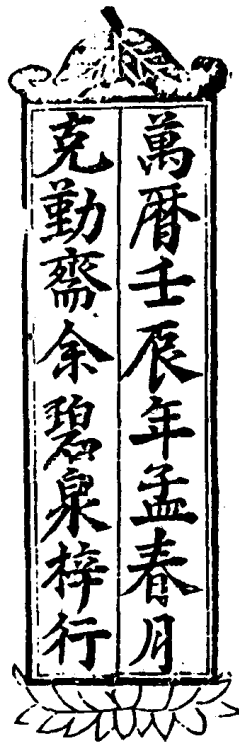 萬曆壬辰年孟春月
克勤齋余碧泉梓行